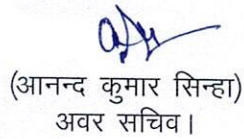 (आनन्द कुमार सिन्हा)
अवर सचिव।